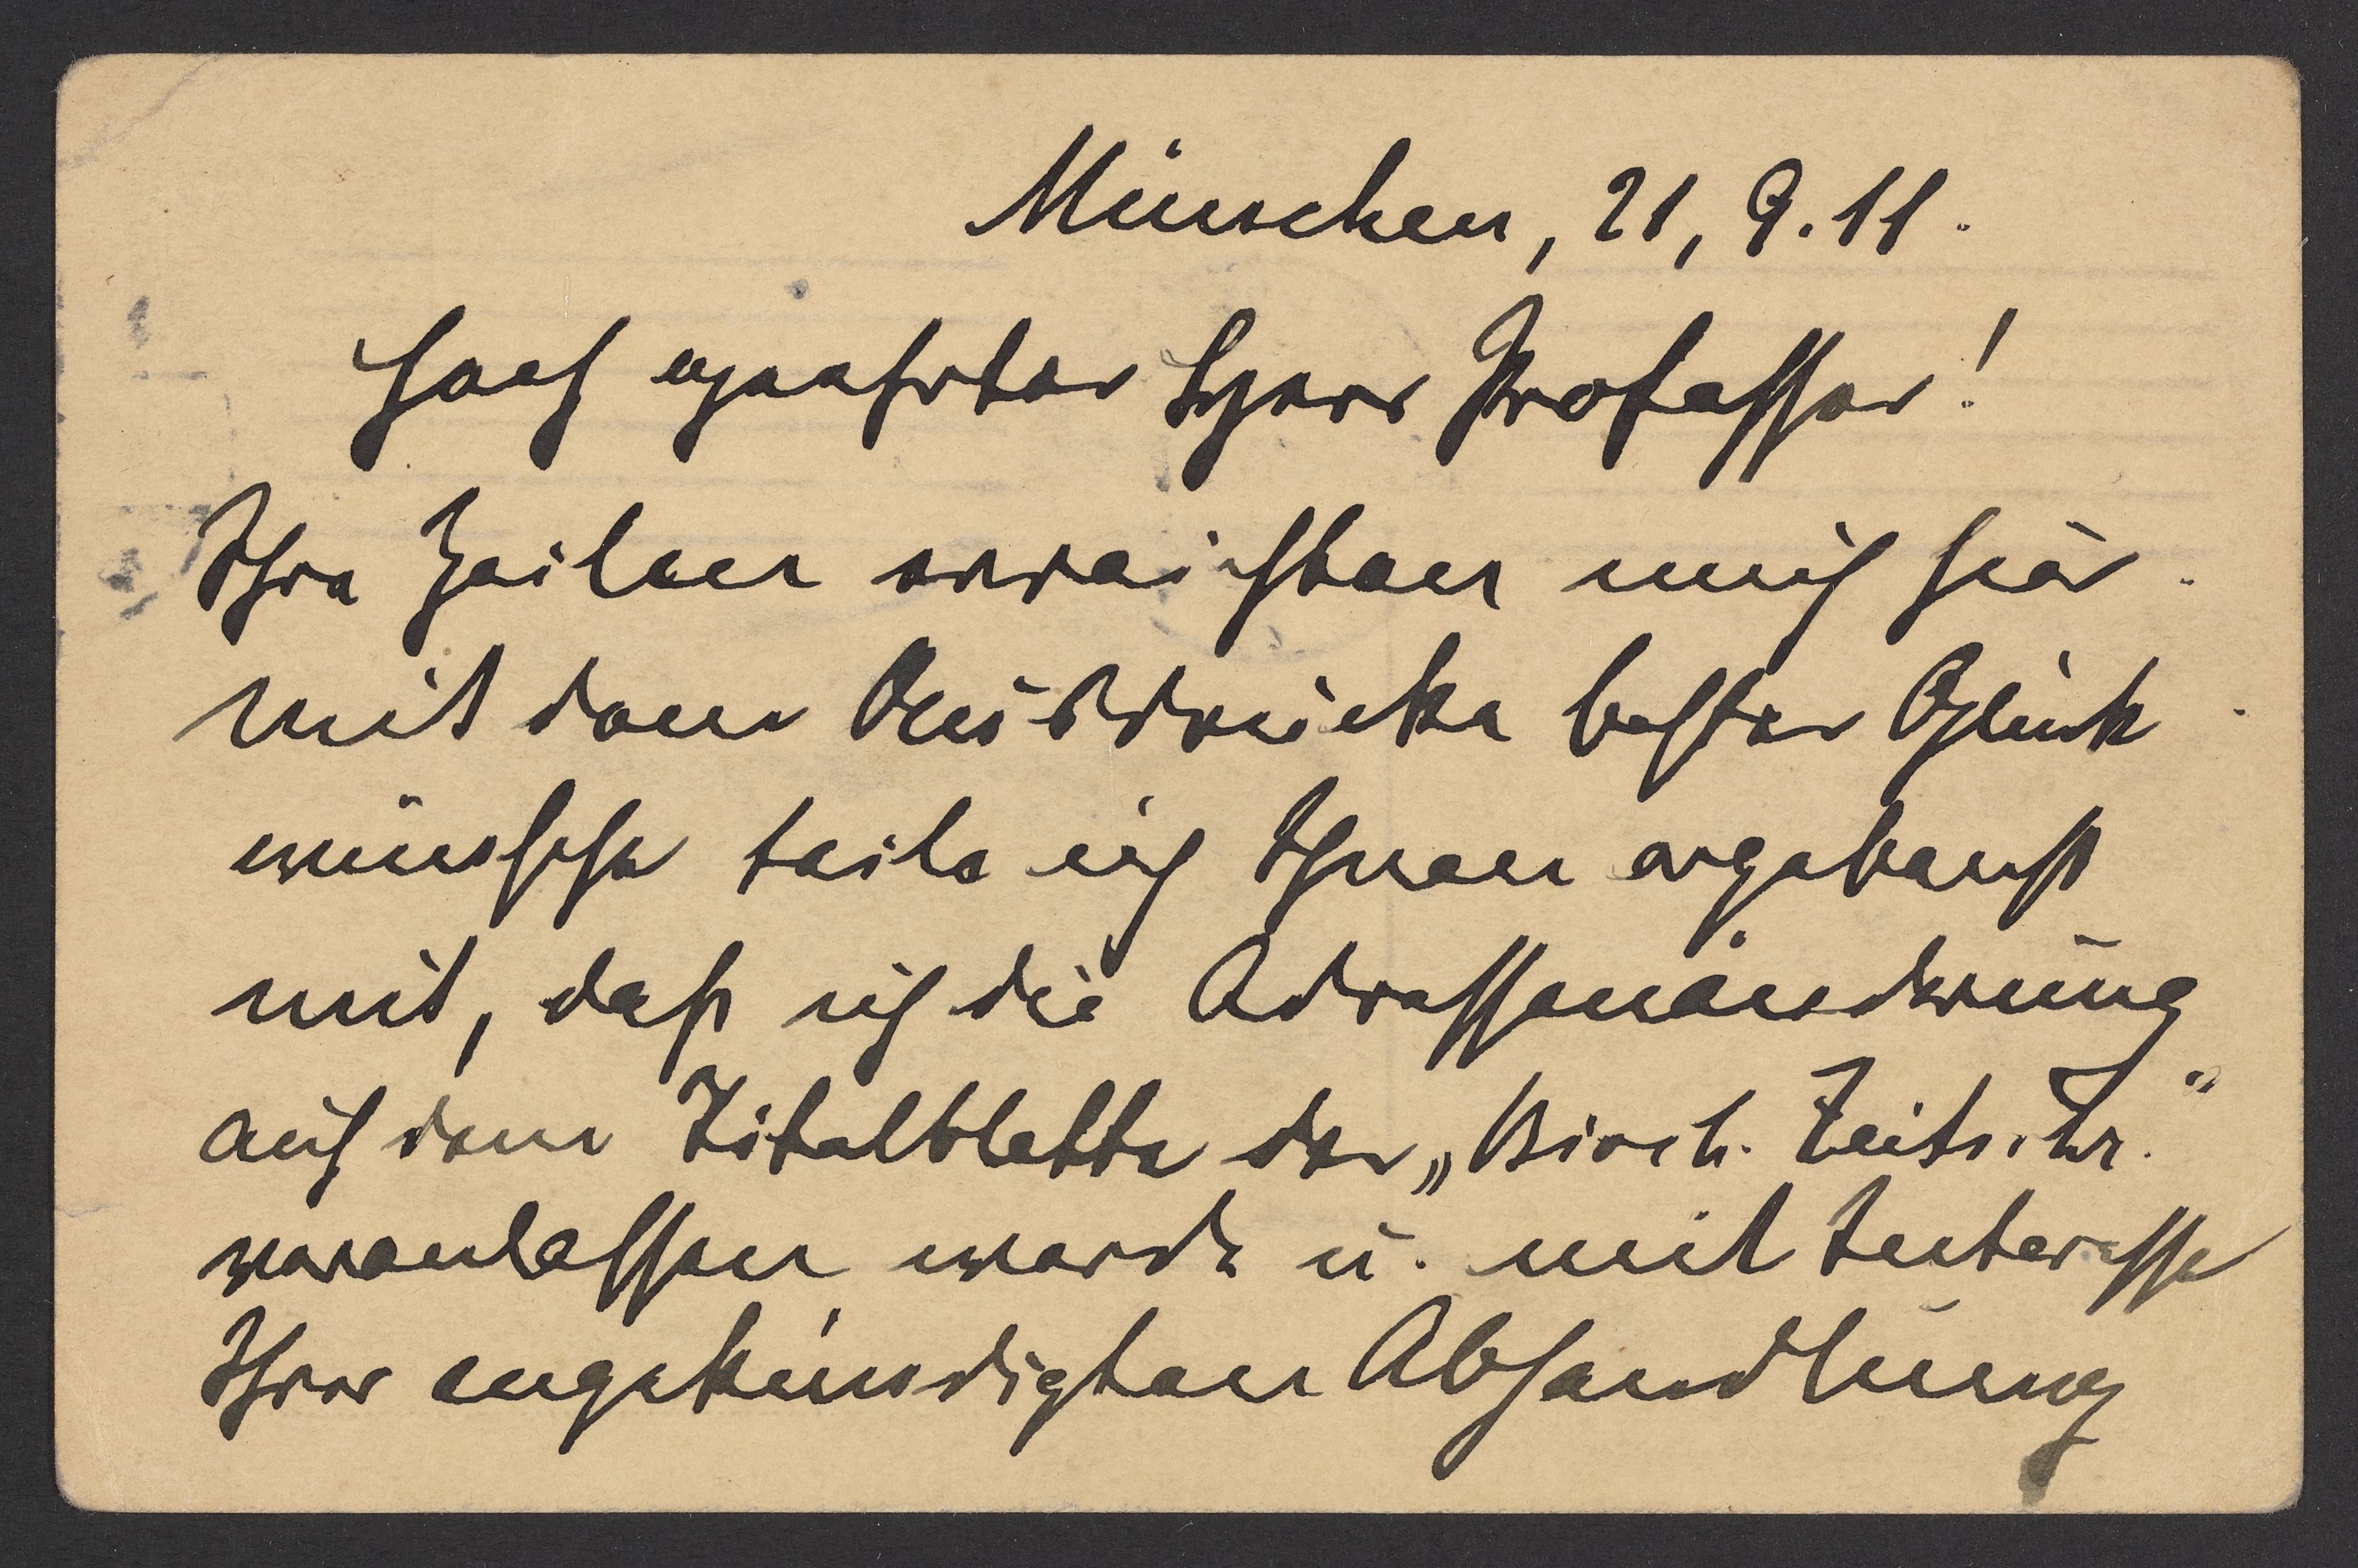 München, 21, 9. 11.
Hoch geehrter Herr Professor!
Ihre Zeilen erreichten mich hier.
Mit dem Ausdrucke bester Glück
wünsche teile ich Ihnen ergebenst
mit, daß ich die Adressenänderung
auf dem Titelblatte der „Bioch. Zeitschr."
veranlassen werde u. mit Interesse
Ihrer angekündigten Abhandlung